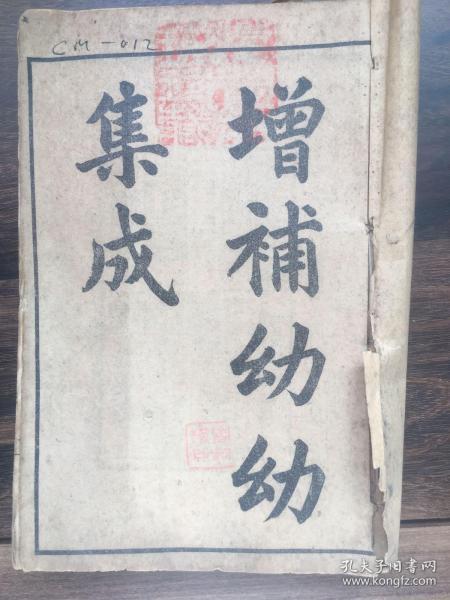 CM-012
增補幼幼
集成
孔夫子旧书网
www.kongfz.com